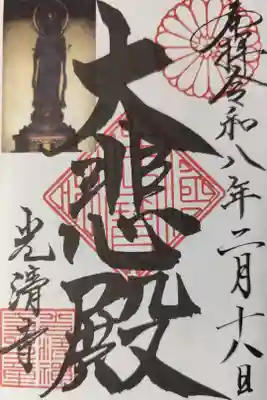 奉拝 令和八年二月十八日
大悲殿
光清寺